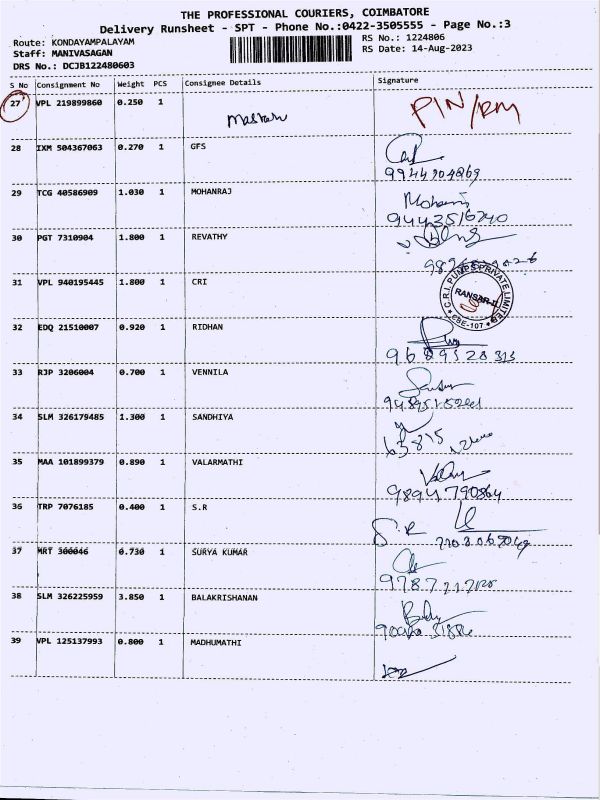 THE PROFESSIONAL COURIERS, COIMBATORE
Delivery Runsheet - SPT - Phone No.:0422-3505555 - Page No.:3
Route: KONDAYAMPALAYAM
RS No.: 1224806
Staff: MANIVASAGAN
RS Date: 14-Aug-2023
DRS No.: DCJB122480603
S No Consignment No Weight PCS Consignee Details Signature
27 VPL 219899860 0.250 1 PIN/RM
28 IXM 504367063 0.270 1 GFS
29 TCG 40586909 1.030 1 MOHANRAJ
9443516240
30 PGT 7310904 1.800 1 REVATHY
31 VPL 940195445 1.800 1 CRI
C.R.I. PUMPS PRIVATE LIMITED
CBE-107
32 EDQ 21510007 0.920 1 RIDHAN
33 RJP 3206004 0.700 1 VENNILA
34 SLM 326179485 1.300 1 SANDHIYA
35 MAA 101899379 0.890 1 VALARMATHI
9894790864
36 TRP 7076185 0.400 1 S.R
S.R
37 MRT 300046 0.730 1 SURYA KUMAR
38 SLM 326225959 3.850 1 BALAKRISHANAN
39 VPL 125137993 0.800 1 MADHUMATHI